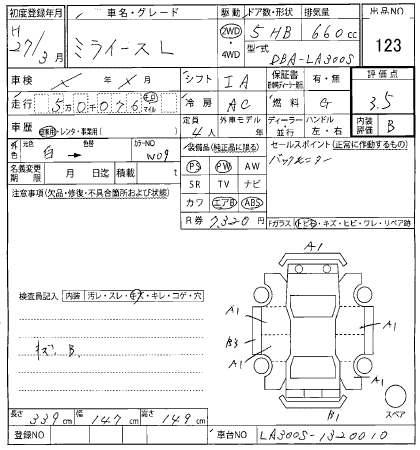 初度登録年月 車名・グレード 駆動 ドア数・形状 排気量 出品NO
H 27/3月 ミライース L 2WD ・ 4WD 5 HB 660cc 123
型式 DBA-LA300S
車検 × 年 × 月 シフト IA 保証書 有・無 評価点
走行 5万0千076 キロ マイル 冷房 AC 燃料 G 3.5
車歴 自家用・レンタ・事業用( ) 定員 4人 外車モデル 年 ディーラー・並行 ハンドル 左・右 内装評価 B
外色 元色 白 → 色替 カラーNO W09
装備品(純正品に限る) セールスポイント(正常に作動するもの)
名義変更期限 月 日迄 積載 t
PS PW AW
注意事項(欠品・修復・不具合箇所および状態)
SR TV ナビ
カワ エアB ABS
R券 7,320円
Fガラス トビキズ・キズ・ヒビ・ワレ・リペア跡
A1
検査員記入 内装 汚レ・スレ・キズ・キレ・コゲ・穴
A1
A1
B3
A1
キズ B.
A1
B1
スペア
長さ 339cm 幅 147cm 高さ 149cm
登録NO 車台NO LA300S-1320010